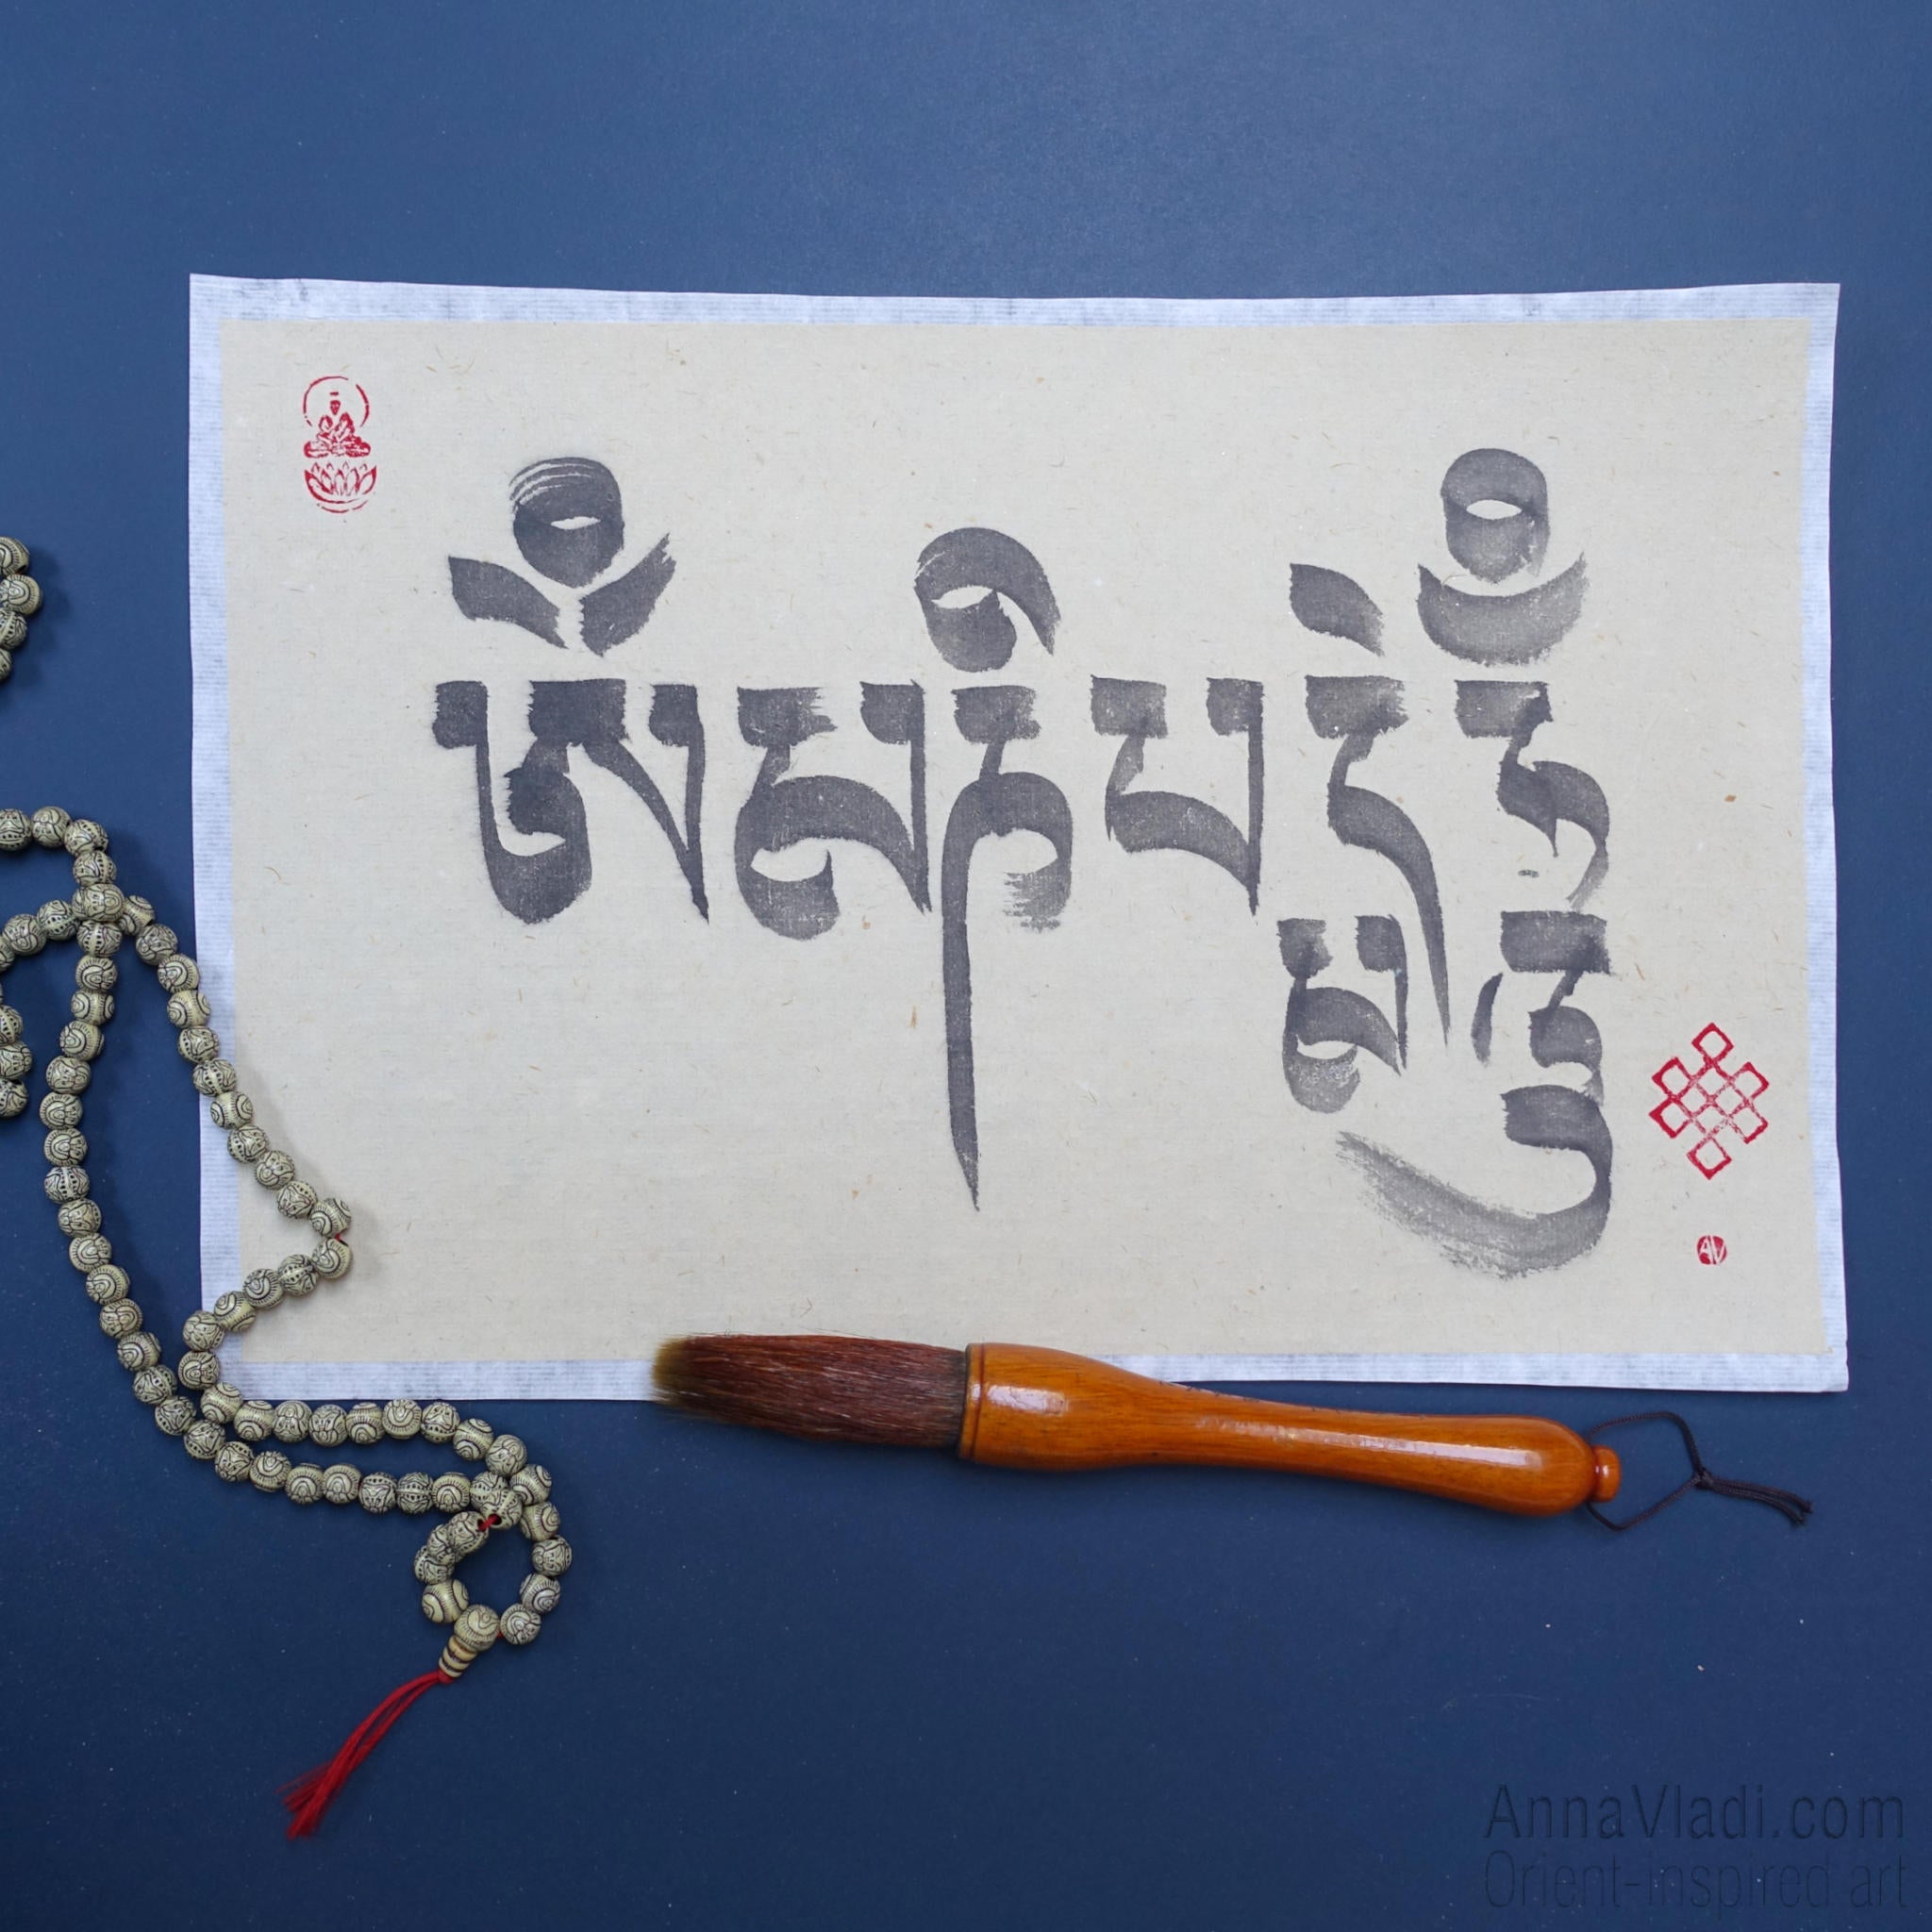 ༀམཎིཔདྨེཧཱུྃ
AV
AnnaVladi.com
Orient-inspired art